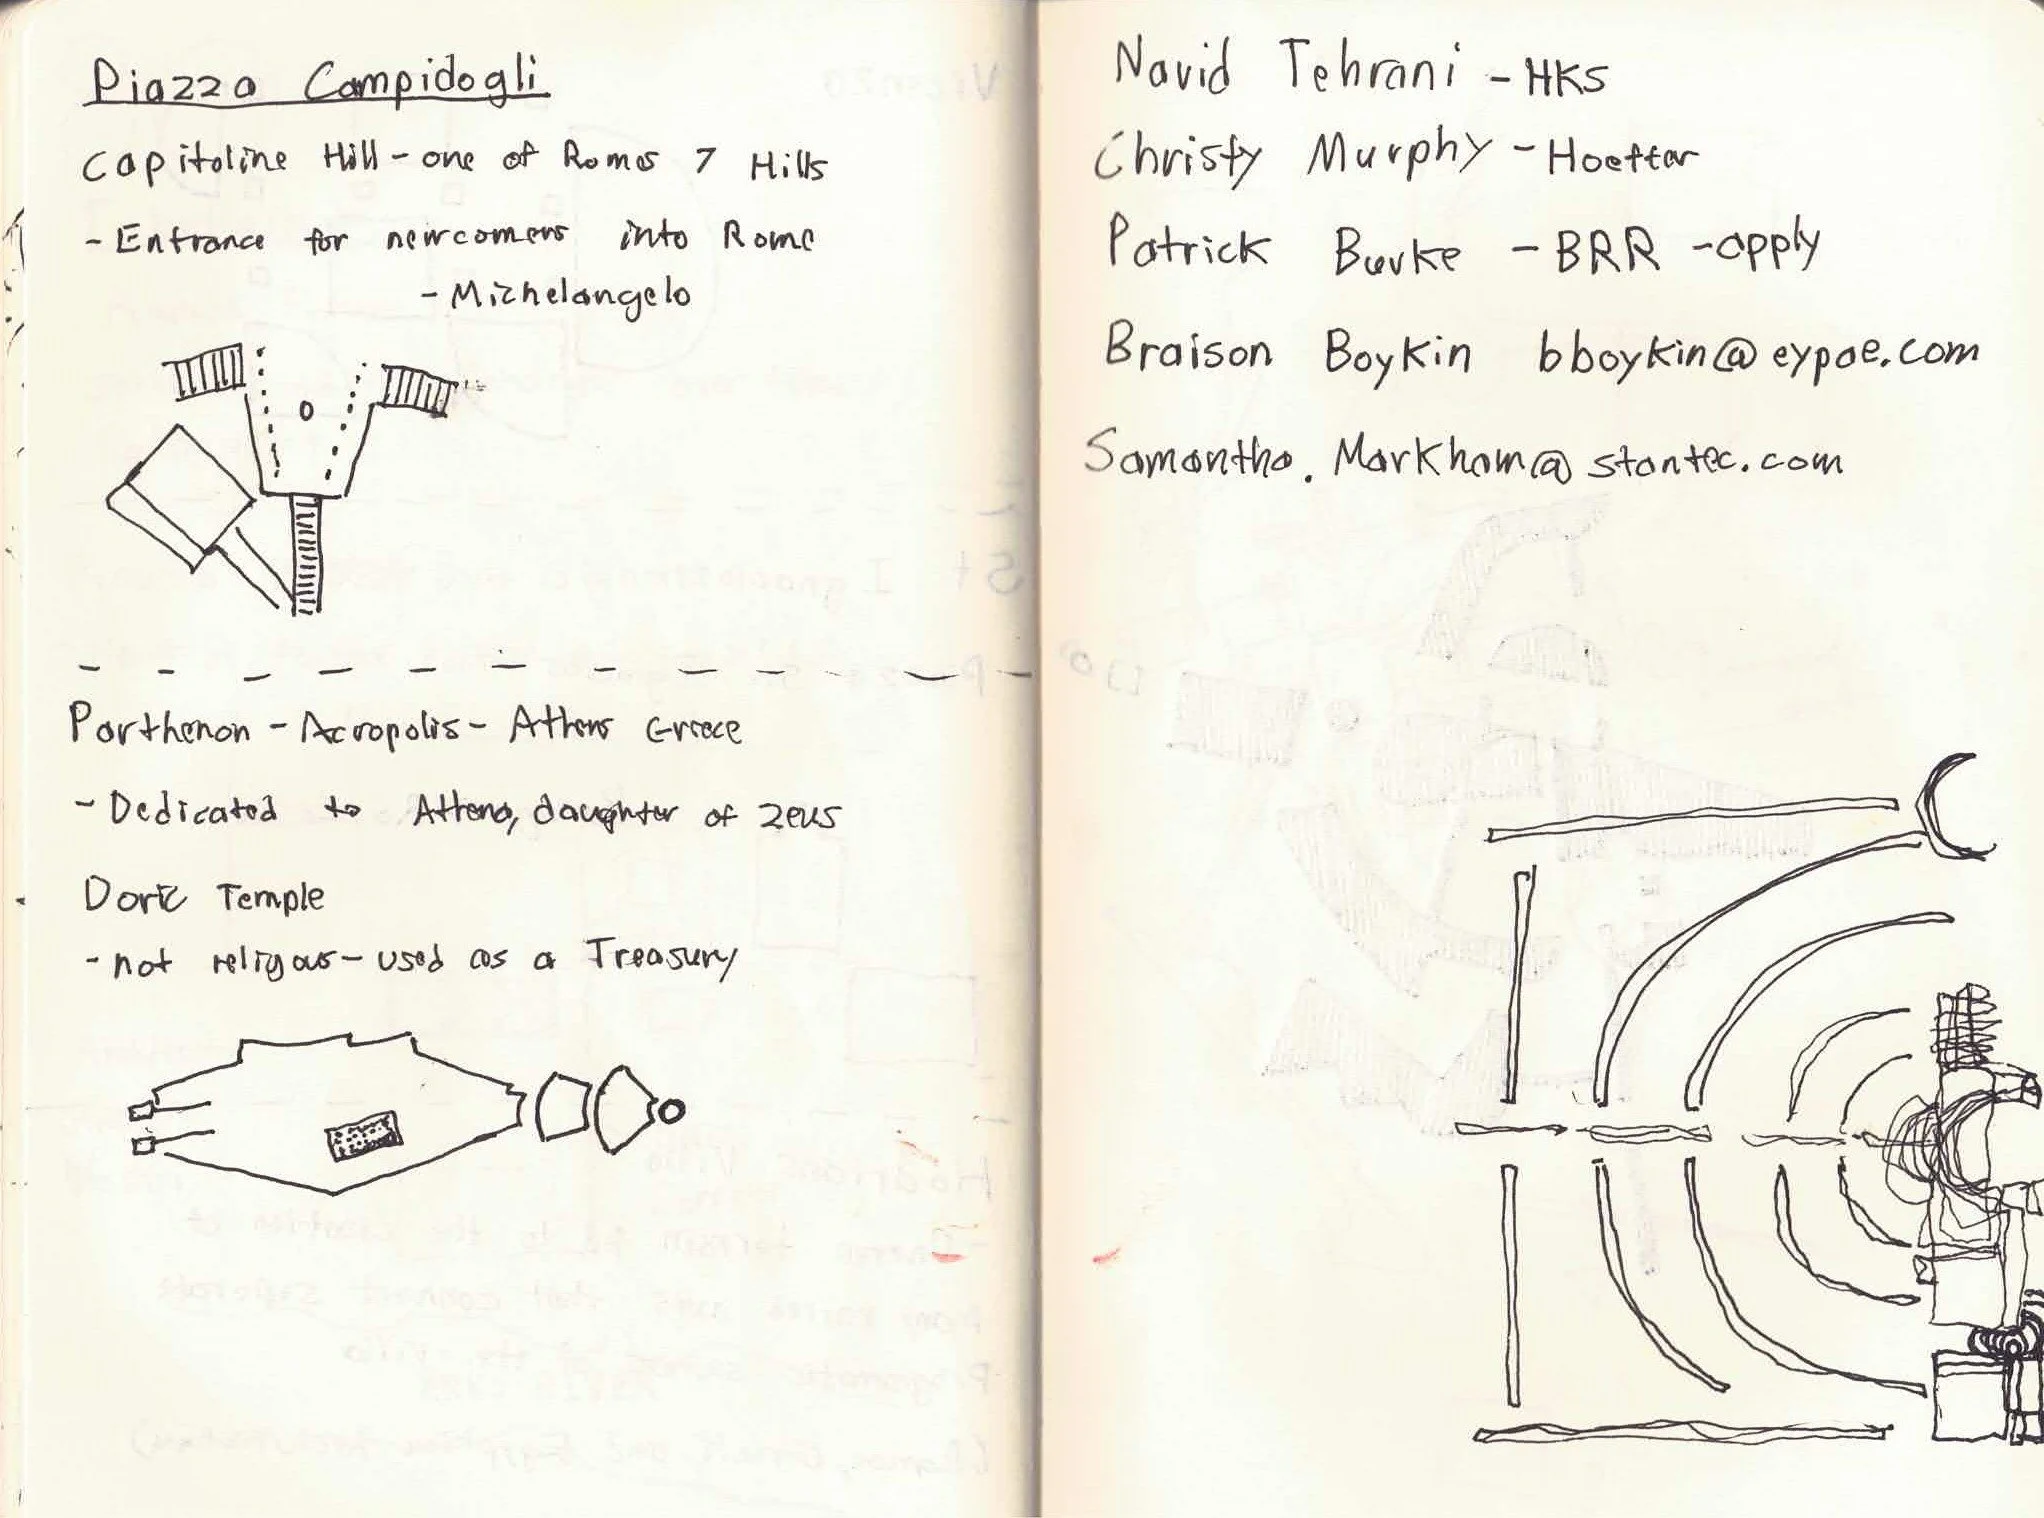 Piazza Campidogli
Capitoline Hill - one of Romes 7 Hills
- Entrance for newcomers into Rome
- Michelangelo
Parthenon - Acropolis - Athens Greece
- Dedicated to Athena, daughter of Zeus
Doric Temple
- not religous - used as a Treasury
Navid Tehrani - HKS
Christy Murphy - Hoefer
Patrick Burke - BRR - apply
Braison Boykin bboykin@eypae.com
Samantha.Markham@stantec.com